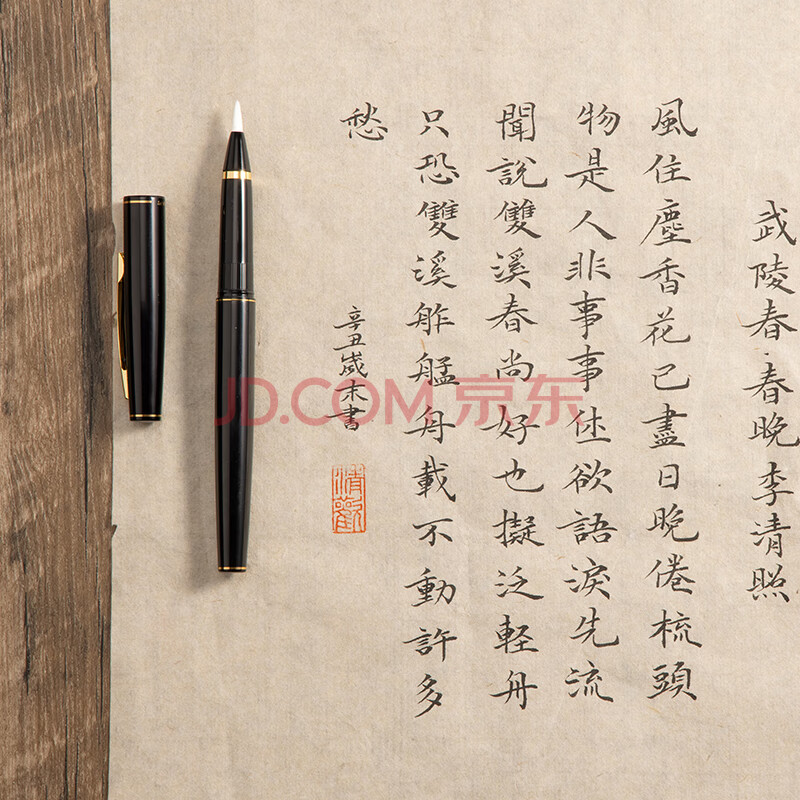 武陵春·春晚李清照
風住塵香花已盡日晚倦梳頭
物是人非事事休欲語淚先流
聞說雙溪春尚好也擬泛軽舟
只恐雙溪舴艋舟載不動許多
愁
辛丑歲末書
清歡
JD.COM 京东